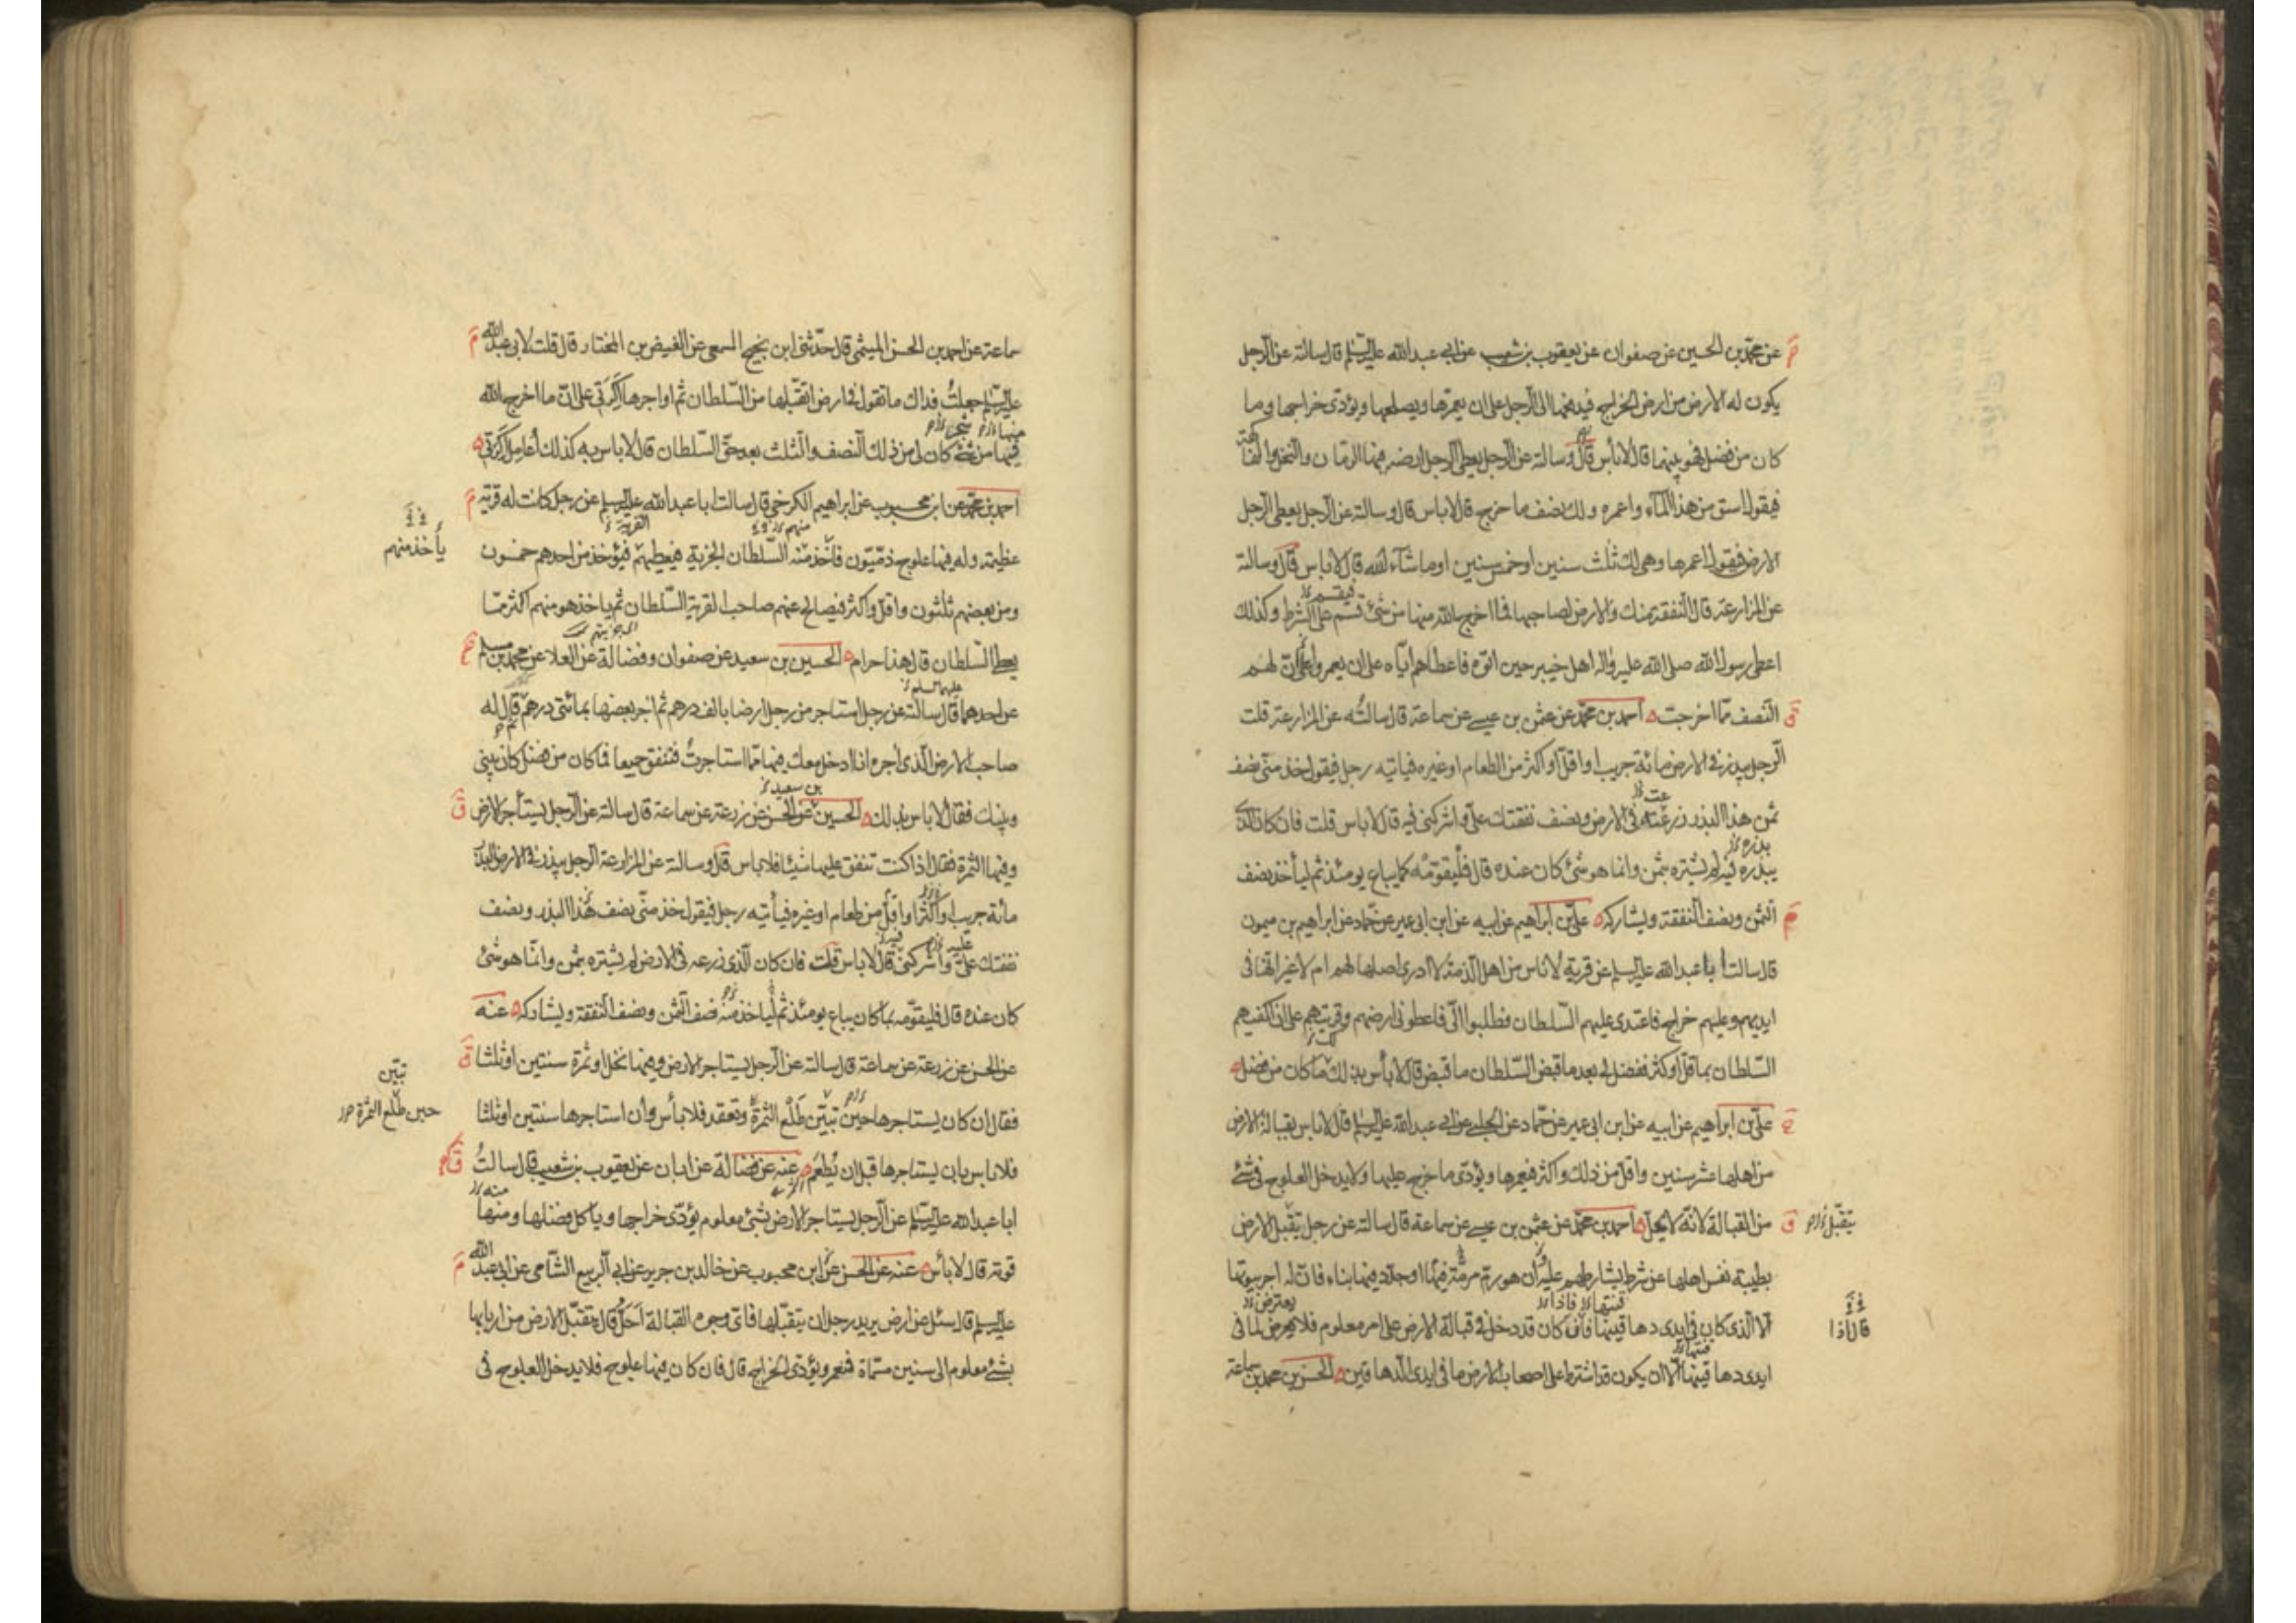 عن محمّد بن الحسين عن صفوان عن يعقوب بن شعيب عن ابى عبد الله عليه السلم قال سالته عن الرّجل
يكون له الارض من ارض الخراج فيدفعها الى الرّجل على ان يعمّرها ويصلحها ويؤدّى خراجها وما
كان من فضل فهو بينهما قال لا بأس قال وسالته عن الرّجل يعطى الرّجل ارضه فيها الرمّان والنخل والفاكهة
فيقول اسق من هذا المآء واعمره ولك نصف ما خرج قال لا باس قال وسالته عن الرّجل يعطى الرّجل
الارض فيقول اعمرها وهى لك ثلث سنين او خمس سنين او ما شآء الله قال لا باس قال وسالته
عن المزارعة قال النّفقة منك والارض لصاحبها فما اخرج الله منها من شئ قسم على الشرط وكذلك
فيقسم
اعطى رسول الله صلى الله عليه واله اهل خيبر حين اتوه فاعطاهم ايّاه على ان يعمروا على انّ لهم
النّصف ممّا اخرجت احمد بن محمّد عن عثمن بن عيسى عن سماعة قال سالتُه عن المزارعة قلت
الرّجل يبذر فى الارض مائة جريب او اقلّ او اكثر من الطعام او غيره فياتيه رجل فيقول خذ منّى نصف
ثمن هذا البذر زرعته فى الارض ونصف نفقتك علىّ واشركنى فيه قال لا باس قلت فان كان الّذى
يبذره فيه لم يشتره بثمن وانما هو شئ كان عنده قال فليقوّمه كما يباع يومئذ ثم ليأخذ نصف
بذره
الثمن ونصف النّفقة ويشاركه علىّ بن ابراهيم عن ابيه عن ابن ابى عمير عن حمّاد عن ابراهيم بن ميمون
قال سالت ابا عبد الله عليه السلم عن قرية لاناس من اهل الذمّة لا ادرى اصلها لهم ام لا غير انّها فى
ايديهم وعليهم خراج فاعتدى عليهم السّلطان فطلبوا الىّ فاعطونى ارضهم وقريتهم على ان اكفيهم
السّلطان بما قلّ او كثر ففضل لى بعد ما قبض السّلطان ما قبض قال لا بأس بذلك لك ما كان من فضل
علىّ بن ابراهيم عن ابيه عن ابن ابى عمير عن حمّاد عن الحلبى عن ابى عبد الله عليه السلم قال لا باس بقبالة الارض
من اهلها عشر سنين واقلّ من ذلك واكثر فيعمرها ويؤدّى ما خرج عليها ولا يدخل العلوج فى شئ
من القبالة لانّه لا يحلّ احمد بن محمّد عن عثمن بن عيسى عن سماعة قال سالته عن رجل يتقبل الارض
يتقبّل
بطيبة نفس اهلها عن شرط يشارطهم عليه وان هو رمّ مرمّة فيها او جدّد فيها بناء فانّ له اجر بيوتها
الّا الّذى كان فى ايدى دهاقينها فان كان قد دخل فى قبالة الارض على امر معلوم فلا يعرض لما فى
قال اذا
ايدى دهاقينها الّا ان يكون قد اشترط على اصحاب الارض ما فى ايدى الدّهاقين الحسن بن محمد بن سماعة
سماعة عن احمد بن الحسن الميثمى قال حدّثنى ابن نجيح المسمعى عن الفيض بن المختار قال قلت لابى عبد الله
عليه السلم جعلتُ فداك ما تقول فى ارض اتقبّلها من السّلطان ثم اواجرها اَكَرَتى على انّ ما اخرج الله
فيها من شئ كان لى من ذلك النّصف والثلث بعد حقّ السّلطان قال لا باس به كذلك أعامل اكرتى
احمد بن محمّد عن ابن محبوب عن ابراهيم الكرخى قال سالت ابا عبد الله عليه السلم عن رجل كانت له قرية
عظيمة وله فيها علوج ذمّيّون فاخذ منه السّلطان الجزية فيعطيهم فيؤخذ من احدهم خمسون
يأخذ منهم
ومن بعضهم ثلثون واقلّ واكثر فيصالح عنهم صاحب القرية السّلطان ثم ياخذ هو منهم اكثر ممّا
يعطى السّلطان قال هذا حرام الحسين بن سعيد عن صفوان وفضالة عن العلا عن محمّد بن مسلم
عن احدهما قال سالته عن رجل استاجر من رجل ارضا بالف درهم ثم اجر بعضها بمائتى درهم قال له
عليهما السلم
صاحب الارض الّذى اجره انا ادخل معك فيها بما استاجرتَ فننفق جميعا فما كان من فضل كان بينى
وبينك فقال لا باس بذلك الحسين عن الحسن عن زرعة عن سماعة قال سالته عن الرّجل يستأجر الارض
بن سعيد
وفيها الثمرة فقال اذا كنت تنفق عليها شيئا فلا باس قال وسالته عن المزارعة الرّجل يبذر فى الارض البذر
مائة جريب او اكثر او اقلّ من طعام او غيره فيأتيه رجل فيقول خذ منّى نصف هذا البذر ونصف
نفقتك علىّ واشركنى قال لا باس قلت فان كان الّذى زرعه فى الارض لم يشتره بثمن وانّما هو شئ
كان عنده قال فليقوّمه بما كان يباع يومئذ ثم لياخذ منه نصف الثمن ونصف النفقة ويشاركه عنه
عن الحسن عن زرعة عن سماعة قال سالته عن الرّجل يستاجر الارض وفيها نخل او ثمرة سنتين او ثلثا
فقال ان كان يستاجرها حين تبيّن طَلْع الثمرة وتعقد فلا بأس وان استاجرها سنتين او ثلثا
تبيّن
حين طلع الثمرة
فلا باس بان يستاجرها قبل ان يُطعَم عنه عن فضالة عن ابان عن يعقوب بن شعيب قال سالتُ
ابا عبد الله عليه السلم عن الرّجل يستاجر الارض بشئ معلوم يؤدّى خراجها وياكل فضلها ومنها
قوته قال لا بأس عنه عن الحسن عن ابن محبوب عن خالد بن جرير عن ابى الربيع الشّامى عن ابى عبد الله
عليه السلم قال سئل عن ارض يريد رجل ان يتقبّلها فاىّ وجوه القبالة اَحَلّ قال يتقبّل الارض من اربابها
بشئ معلوم الى سنين مسمّاة فيعمر ويؤدّى الخراج قال فان كان فيها علوج فلا يدخل العلوج فى